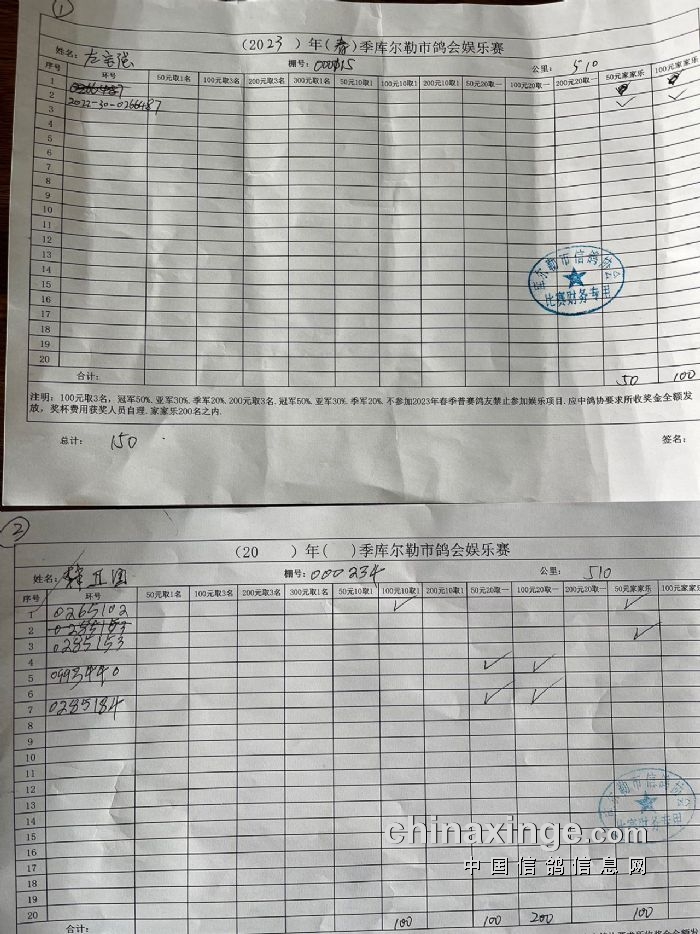 ①
(2023)年(春)季库尔勒市鸽会娱乐赛
姓名: 棚号:000815 公里: 510
序号 环号 50元取1名 100元取3名 200元取3名 300元取1名 50元10取1 100元10取1 200元10取1 50元20取一 100元20取一 200元20取一 50元家家乐 100元家家乐
1 0266487
2 2022-30-0266487
3
4
5
6
7
8
9
10
11
12
13
14
15
16
17
18
19
20
合计: 50 100
库尔勒市信鸽协会
比赛财务专用
注明: 100元取3名, 冠军50%.亚军30%.季军20%.200元取3名.冠军50%.亚军30%. 季军20%.不参加2023年春季普赛鸽友禁止参加娱乐项目.应中鸽协要求所收奖金全额发
放, 奖杯费用获奖人员自理.家家乐200名之内.
总计: 150 签名:
②
(20 )年( )季库尔勒市鸽会娱乐赛
姓名: 棚号:000234 公里: 510
序号 环号 50元取1名 100元取3名 200元取3名 300元取1名 50元10取1 100元10取1 200元10取1 50元20取一 100元20取一 200元20取一 50元家家乐 100元家家
1 0265102 ✓ ✓
2 0285153
3 0285153 ✓
4 ✓ ✓
5 0993440
6 ✓ ✓
7 0285184
8
9
10
11
12
13
14
15
16
17
18
19
20
库尔勒市信鸽协会
比赛财务专用
chinaxinge.com
中国信鸽信息网
合计: 100 100 200 100